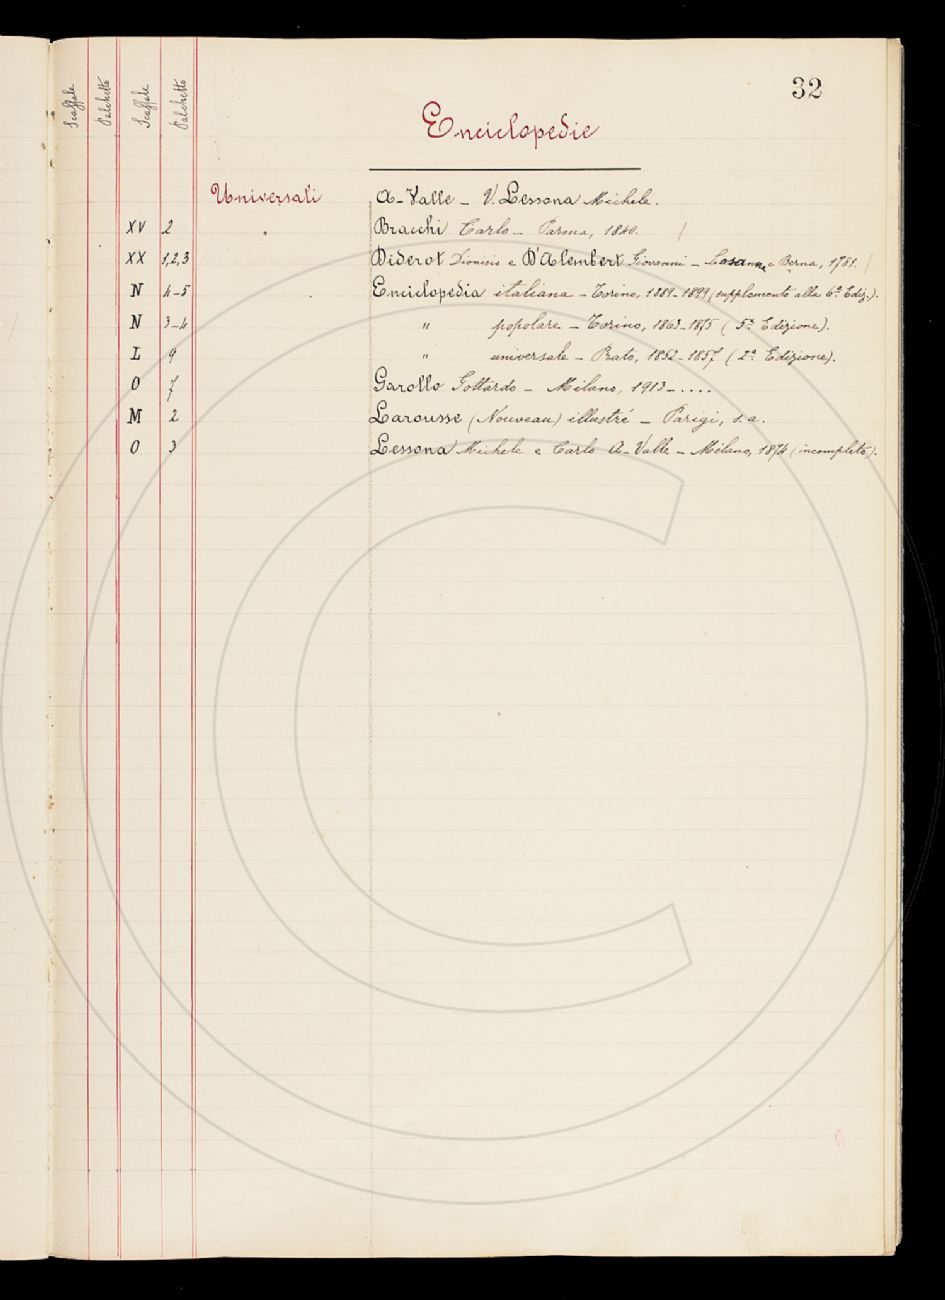 32
Scaffale Palchetto Scaffale Palchetto
Enciclopedie
Universali A-Valle - V. Lessona Michele.
XV 2 Bracchi Carlo - Parma, 1840.
XX 1,2,3 Diderot Dionisio e D'Alembert Giovanni - Losanna e Berna, 1781.
N 4-5 Enciclopedia italiana - Torino, 1889-1899 (supplemento alla 6ª Ediz.).
N 3-4 " popolare - Torino, 1863-1875 (5ª Edizione).
L 9 " universale - Prato, 1852-1857 (2ª Edizione).
O 7 Garollo Gottardo - Milano, 1913-....
M 2 Larousse (Nouveau) illustré - Parigi, s. a.
O 3 Lessona Michele e Carlo A-Valle - Milano, 1874 (incompleto).